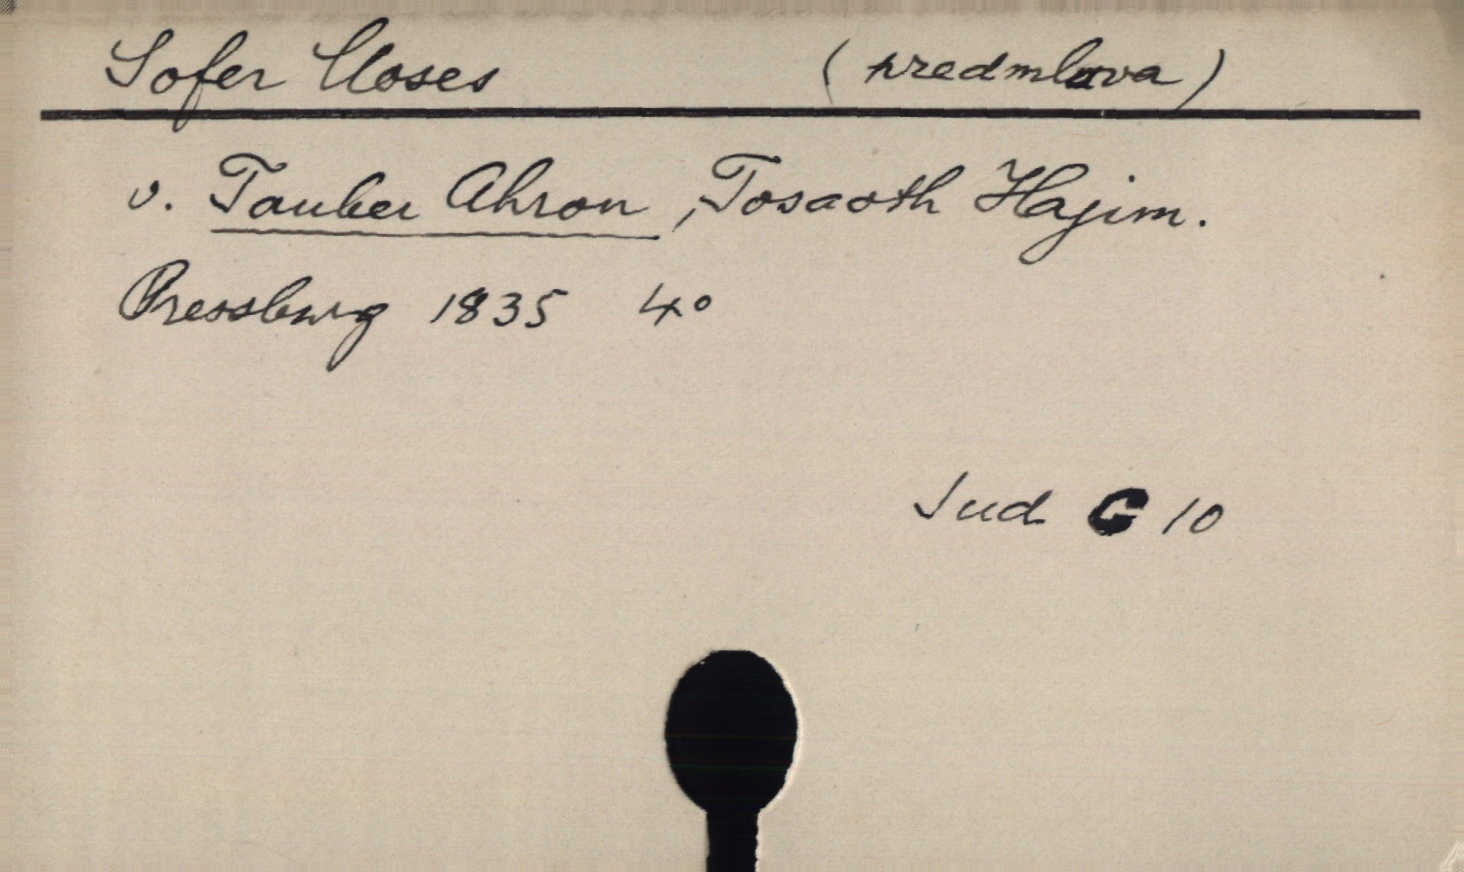 Sofer Moses (predmluva)
v. Tauber Ahron, Tosaoth Hajim.
Pressburg 1835 4°
Jud C 10